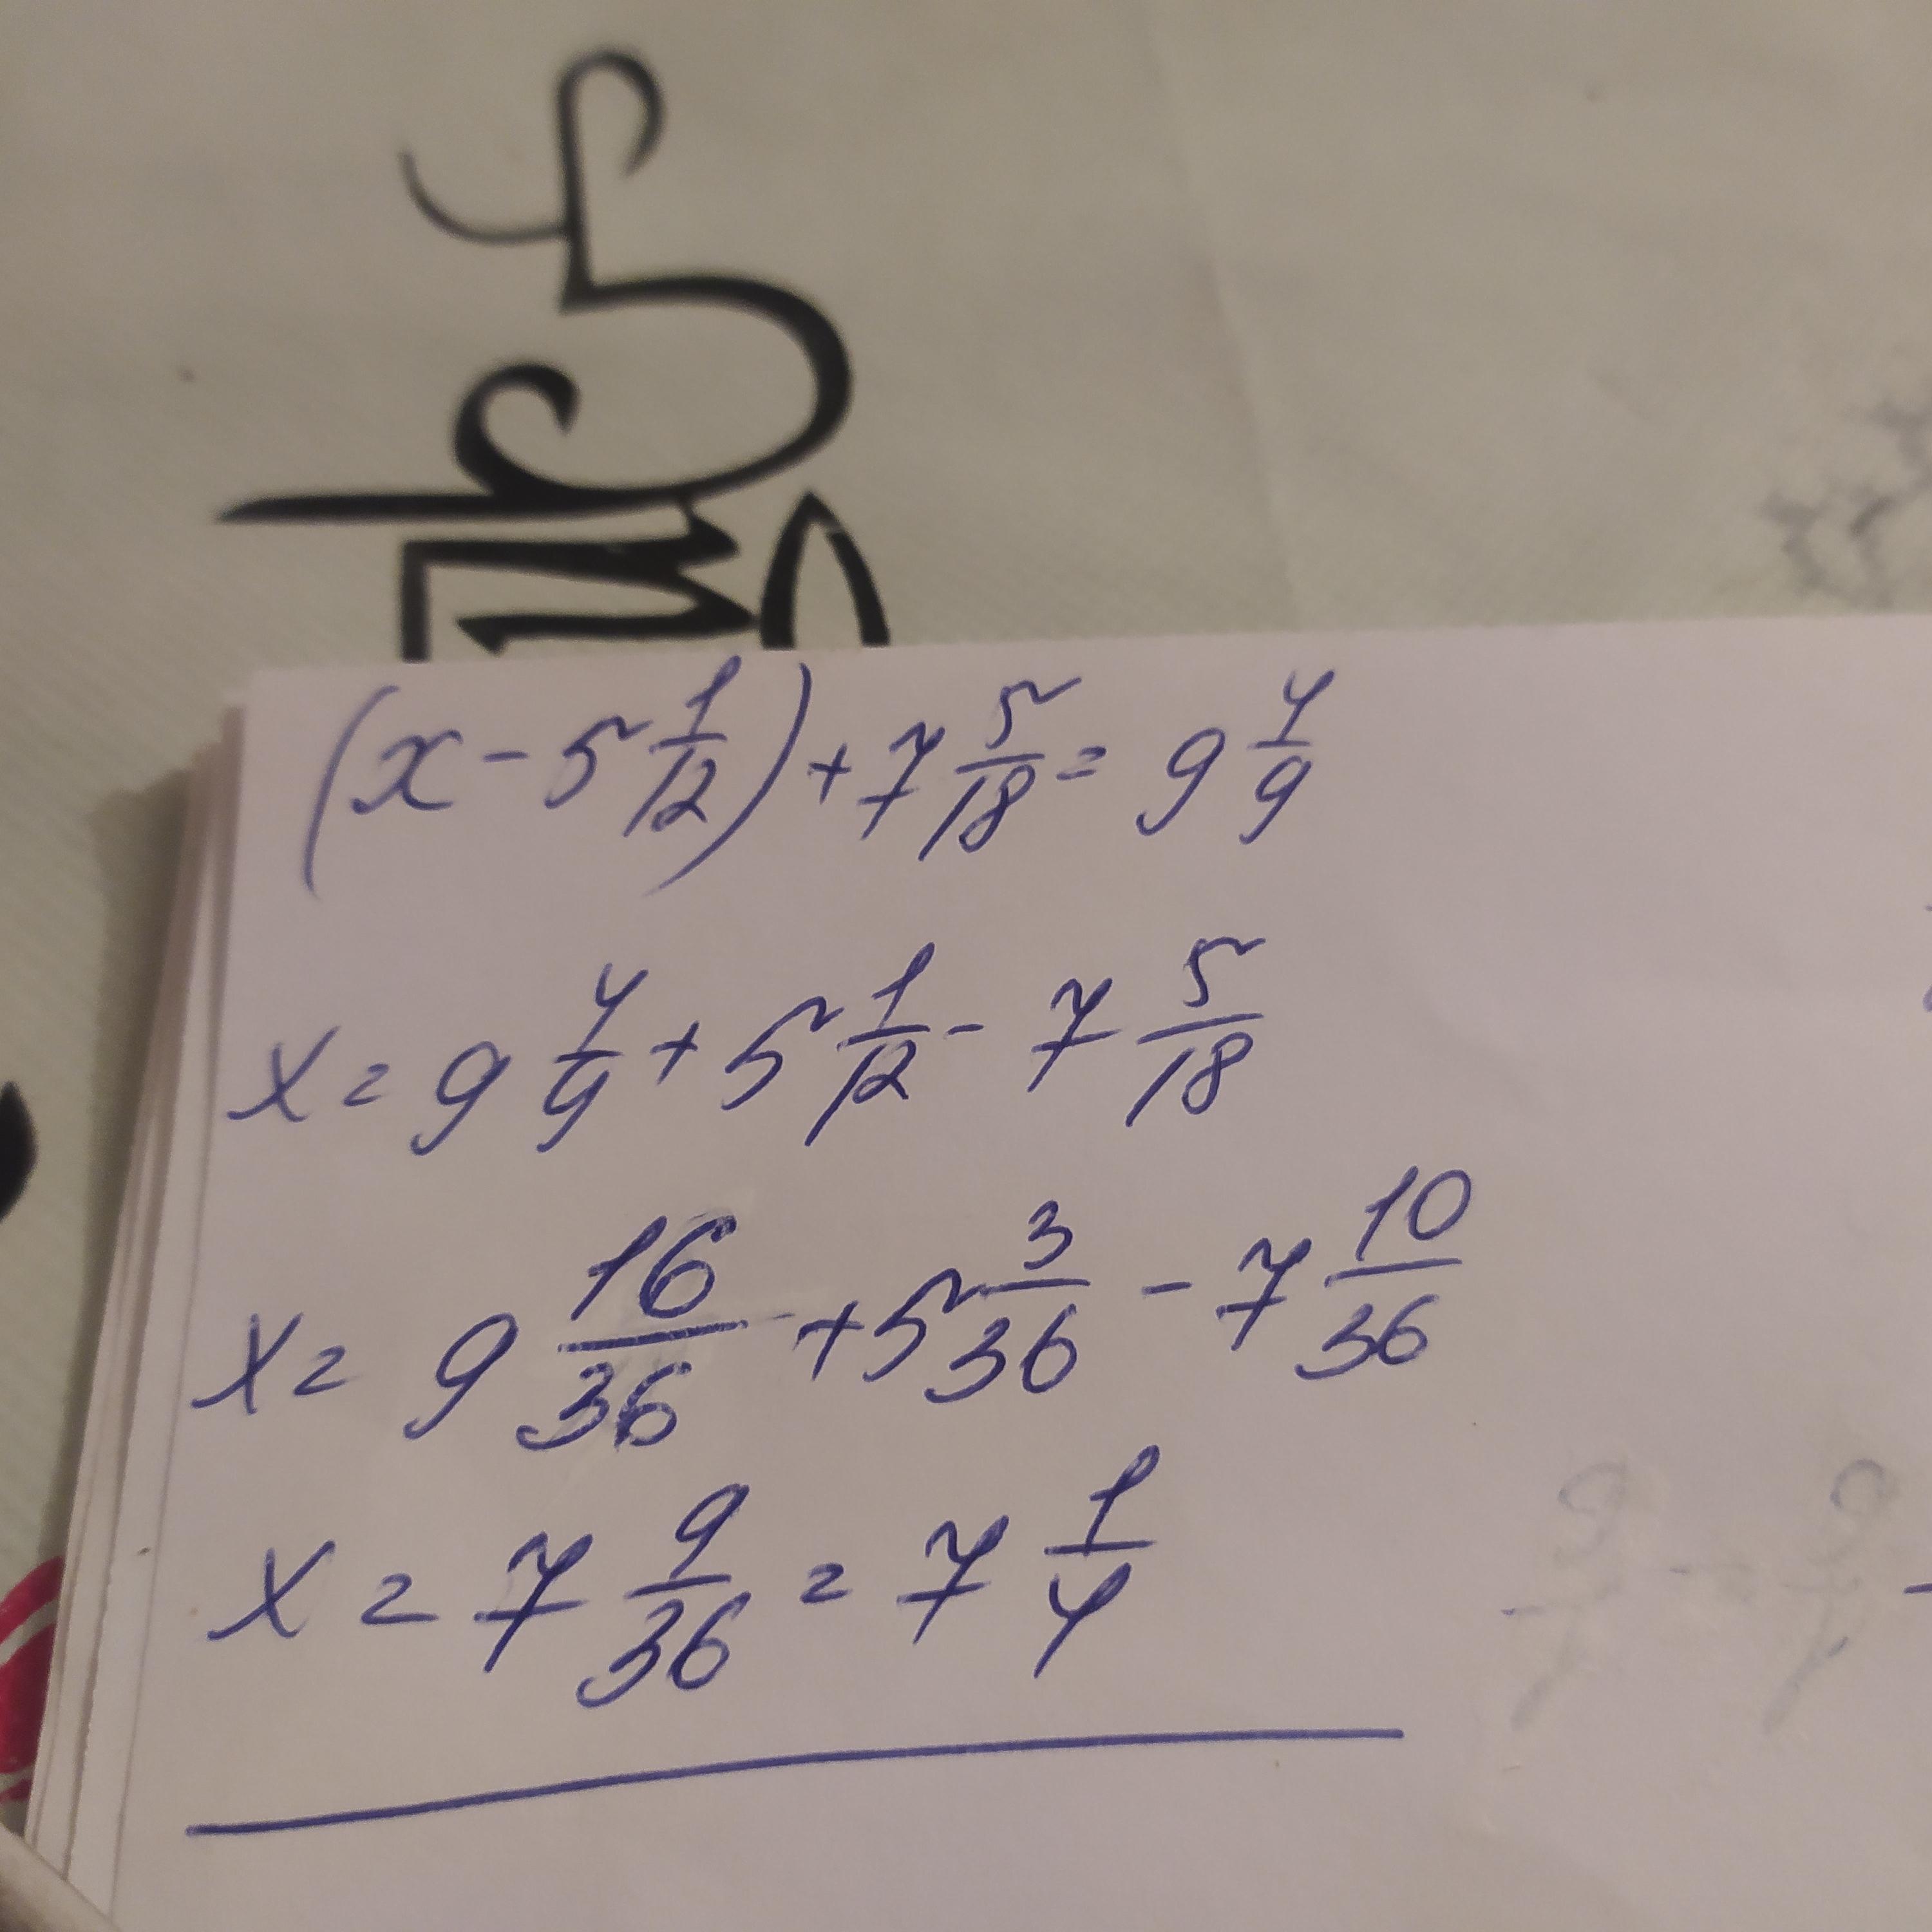 (x - 5 1/12) + 7 5/18 = 9 4/9
x = 9 4/9 + 5 1/12 - 7 5/18
x = 9 16/36 + 5 3/36 - 7 10/36
x = 7 9/36 = 7 1/4